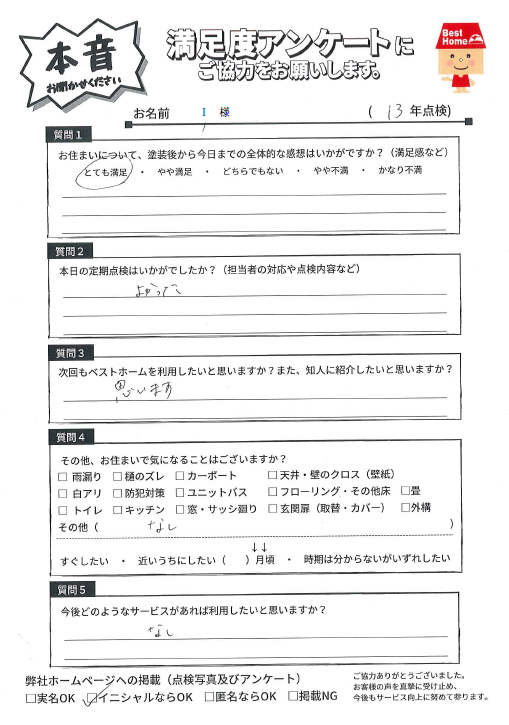 本音
お聞かせください
満足度アンケートに
ご協力をお願いします。
Best
Home
お名前 I 様 ( 13 年点検)
質問1
お住まいについて、塗装後から今日までの全体的な感想はいかがですか？（満足感など）
とても満足 ・ やや満足 ・ どちらでもない ・ やや不満 ・ かなり不満
質問2
本日の定期点検はいかがでしたか？（担当者の対応や点検内容など）
よかった
質問3
次回もベストホームを利用したいと思いますか？また、知人に紹介したいと思いますか？
思います
質問4
その他、お住まいで気になることはございますか？
□ 雨漏り □ 樋のズレ □ カーポート □ 天井・壁のクロス（壁紙）
□ 白アリ □ 防犯対策 □ ユニットバス □ フローリング・その他床 □畳
□ トイレ □ キッチン □ 窓・サッシ廻り □ 玄関扉（取替・カバー） □外構
その他（ なし ）
↓↓
すぐしたい ・ 近いうちにしたい（ ）月頃 ・ 時期は分からないがいずれしたい
質問5
今後どのようなサービスがあれば利用したいと思いますか？
なし
弊社ホームページへの掲載（点検写真及びアンケート）
□実名OK ☑イニシャルならOK □匿名ならOK □掲載NG
ご協力ありがとうございました。
お客様の声を真摯に受け止め、
今後もサービス向上に努めて参ります。